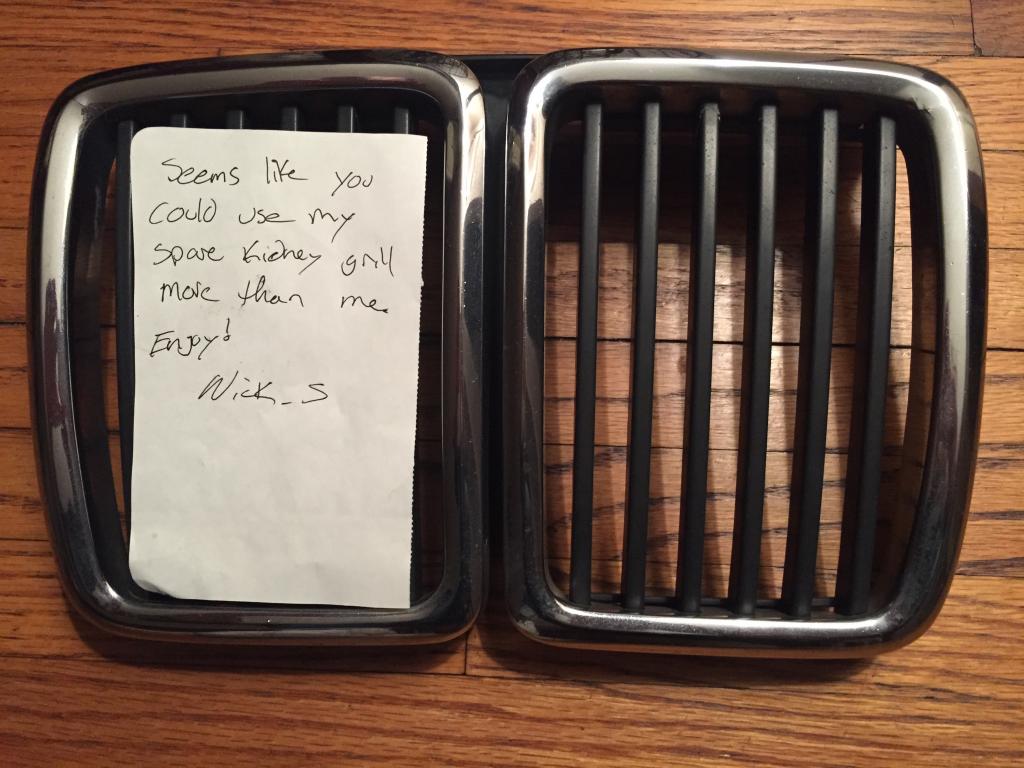 Seems like you
could use my
spare kidney grill
more than me.
Enjoy!
Nick_S